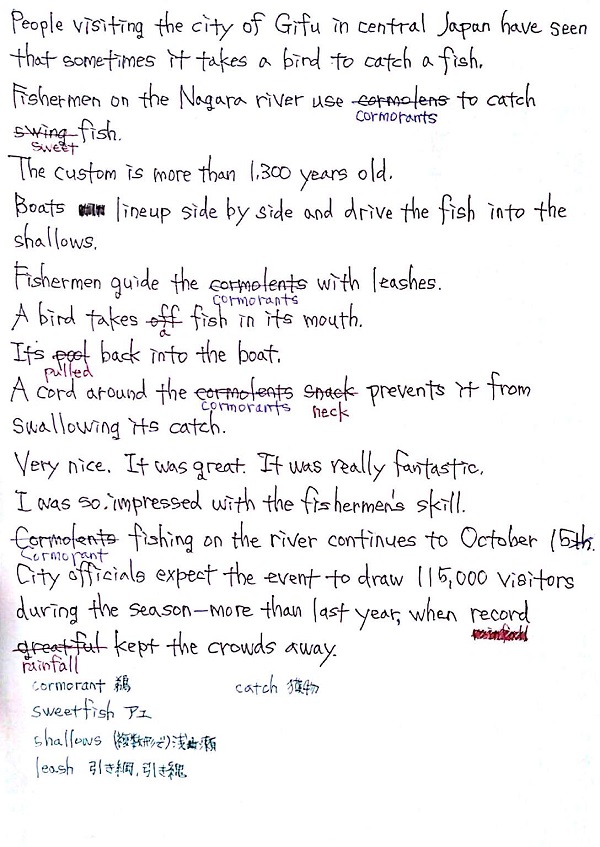 People visiting the city of Gifu in central Japan have seen
that sometimes it takes a bird to catch a fish.
Fishermen on the Nagara river use cormolens to catch
cormorants
swing fish.
sweet
The custom is more than 1,300 years old.
Boats lineup side by side and drive the fish into the
shallows.
Fishermen guide the cormolents with leashes.
cormorants
A bird takes off fish in its mouth.
a
It's pool back into the boat.
pulled
A cord around the cormolents snack prevents it from
cormorants neck
swallowing its catch.
Very nice. It was great. It was really fantastic.
I was so impressed with the fishermen's skill.
Cormolents fishing on the river continues to October 15th.
Cormorant
City officials expect the event to draw 115,000 visitors
during the season—more than last year, when record
greatful kept the crowds away.
rainfall
cormorant 鵜 catch 獲物
sweetfish アユ
shallows (複数形で)浅瀬
leash 引き綱,引き紐